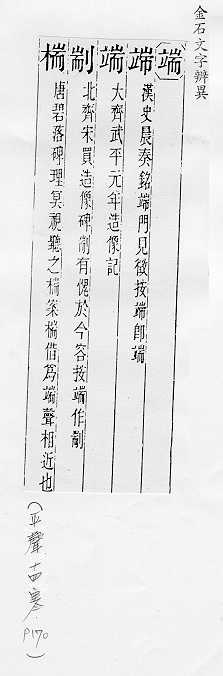 金石文字辨異
端
端 漢史晨奏銘端門見徵按端即端
端 大齊武平元年造像記
剬 北齊宋買造像碑剬有愧於今容按端作剬
椯 唐碧落碑理冥視聽之椯篆椯借爲端聲相近也
(平聲 十四寒 P170)